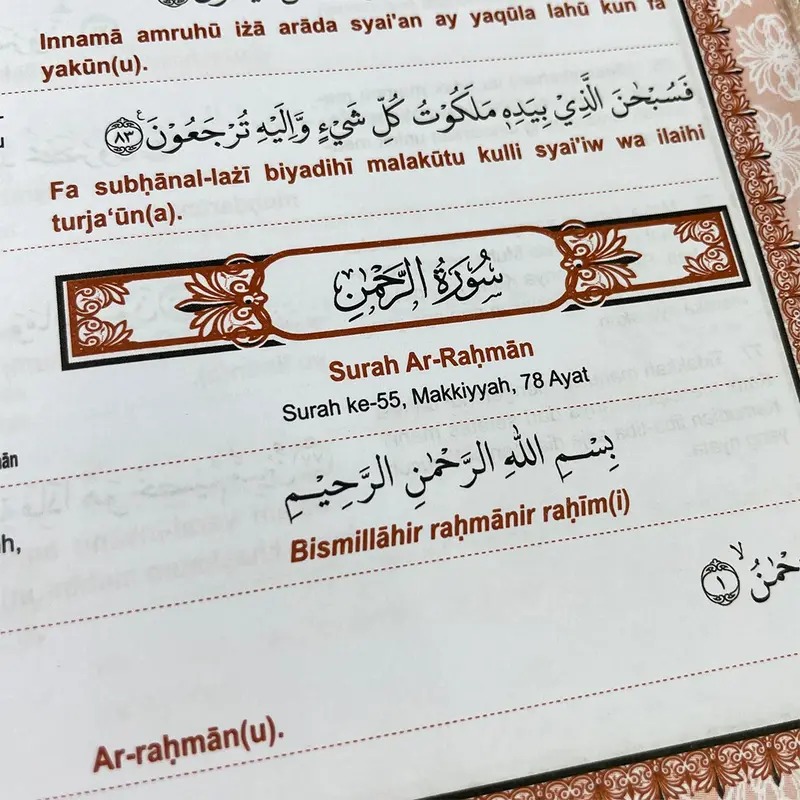 Innamā amruhū iżā arāda syai'an ay yaqūla lahū kun fa
yakūn(u).
فَسُبْحٰنَ الَّذِيْ بِيَدِهٖ مَلَكُوْتُ كُلِّ شَيْءٍ وَّاِلَيْهِ تُرْجَعُوْنَ ࣖ ٨٣
Fa subḥānal-lażī biyadihī malakūtu kulli syai'iw wa ilaihi
turja‘ūn(a).
سُوْرَةُ الرَّحْمٰنِ
Surah Ar-Raḥmān
Surah ke-55, Makkiyyah, 78 Ayat
بِسْمِ اللّٰهِ الرَّحْمٰنِ الرَّحِيْمِ
Bismillāhir raḥmānir raḥīm(i)
حْمٰنُۙ ١
Ar-raḥmān(u).